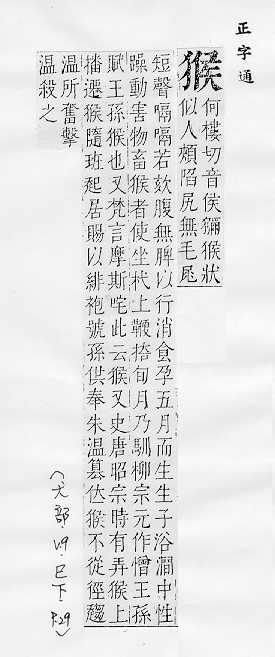 正字通
猴
何樓切音侯獼猴狀
似人頰陷尻無毛尾
短聲嗝嗝若欬腹無脾以行消食孕五月而生生子浴澗中性
躁動害物畜猴者使坐杙上鞭掊旬月乃馴柳宗元作憎王孫
賦王孫猴也又梵言摩斯咤此云猴又史唐昭宗時有弄猴上
播遷猴隨班起居賜以緋袍號孫供奉朱溫篡位猴不從徑趨
溫所奮擊
溫殺之
(犬部
V.9.巳下
P.29)